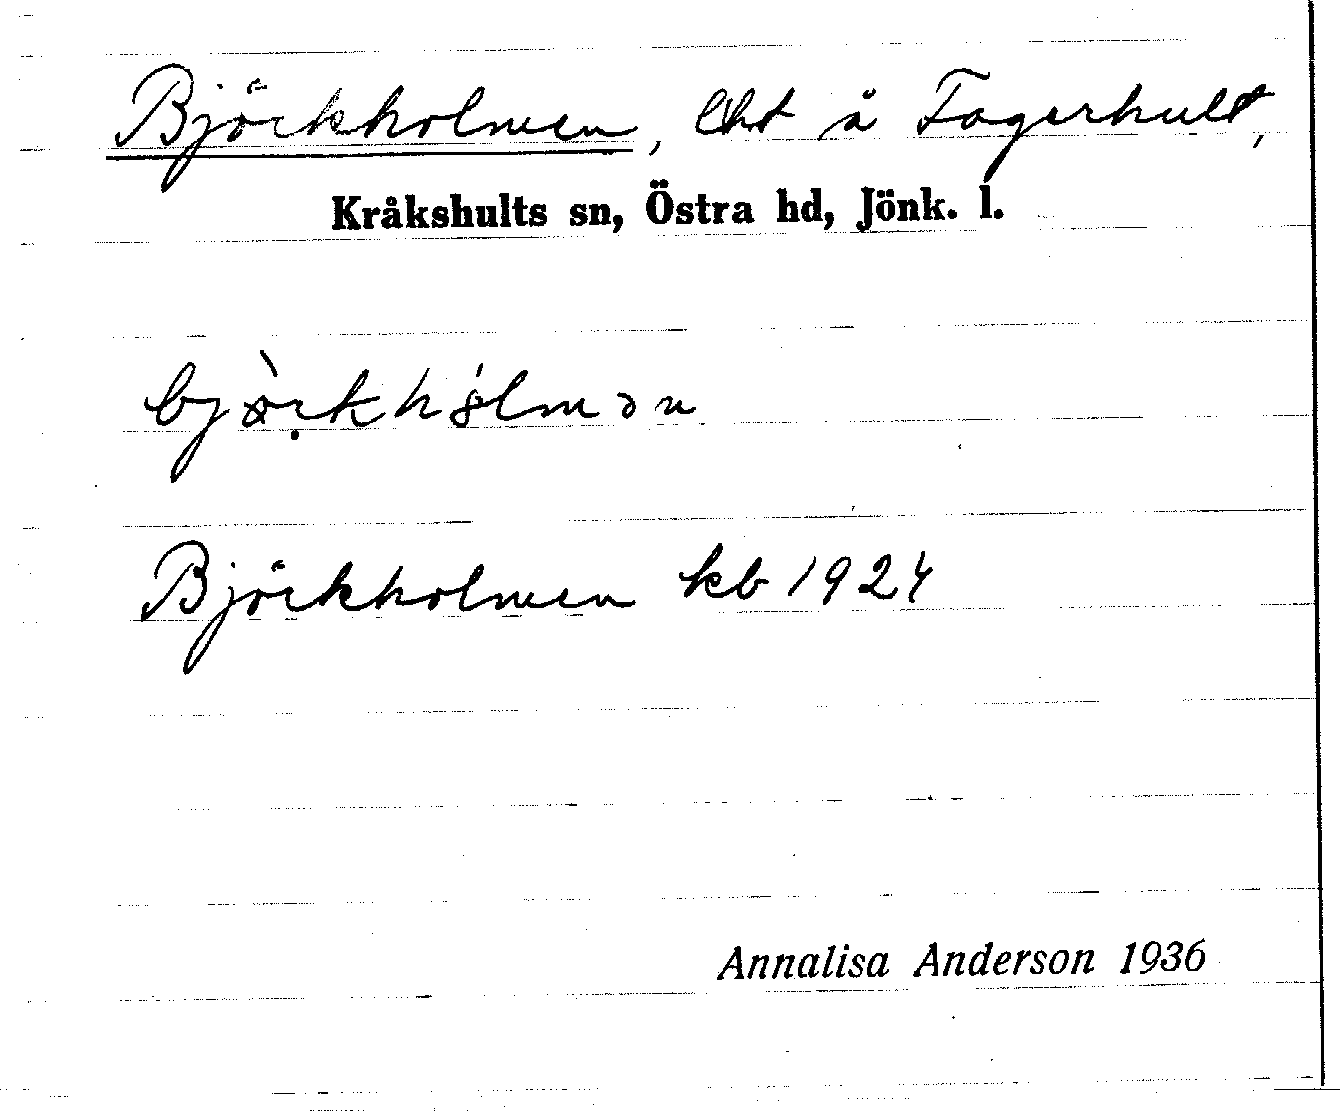 Björkholmen, lht å Fagerhult,
Kråkshults sn, Östra hd, Jönk. l.
Björkholmen kb 1924
Annalisa Anderson 1936